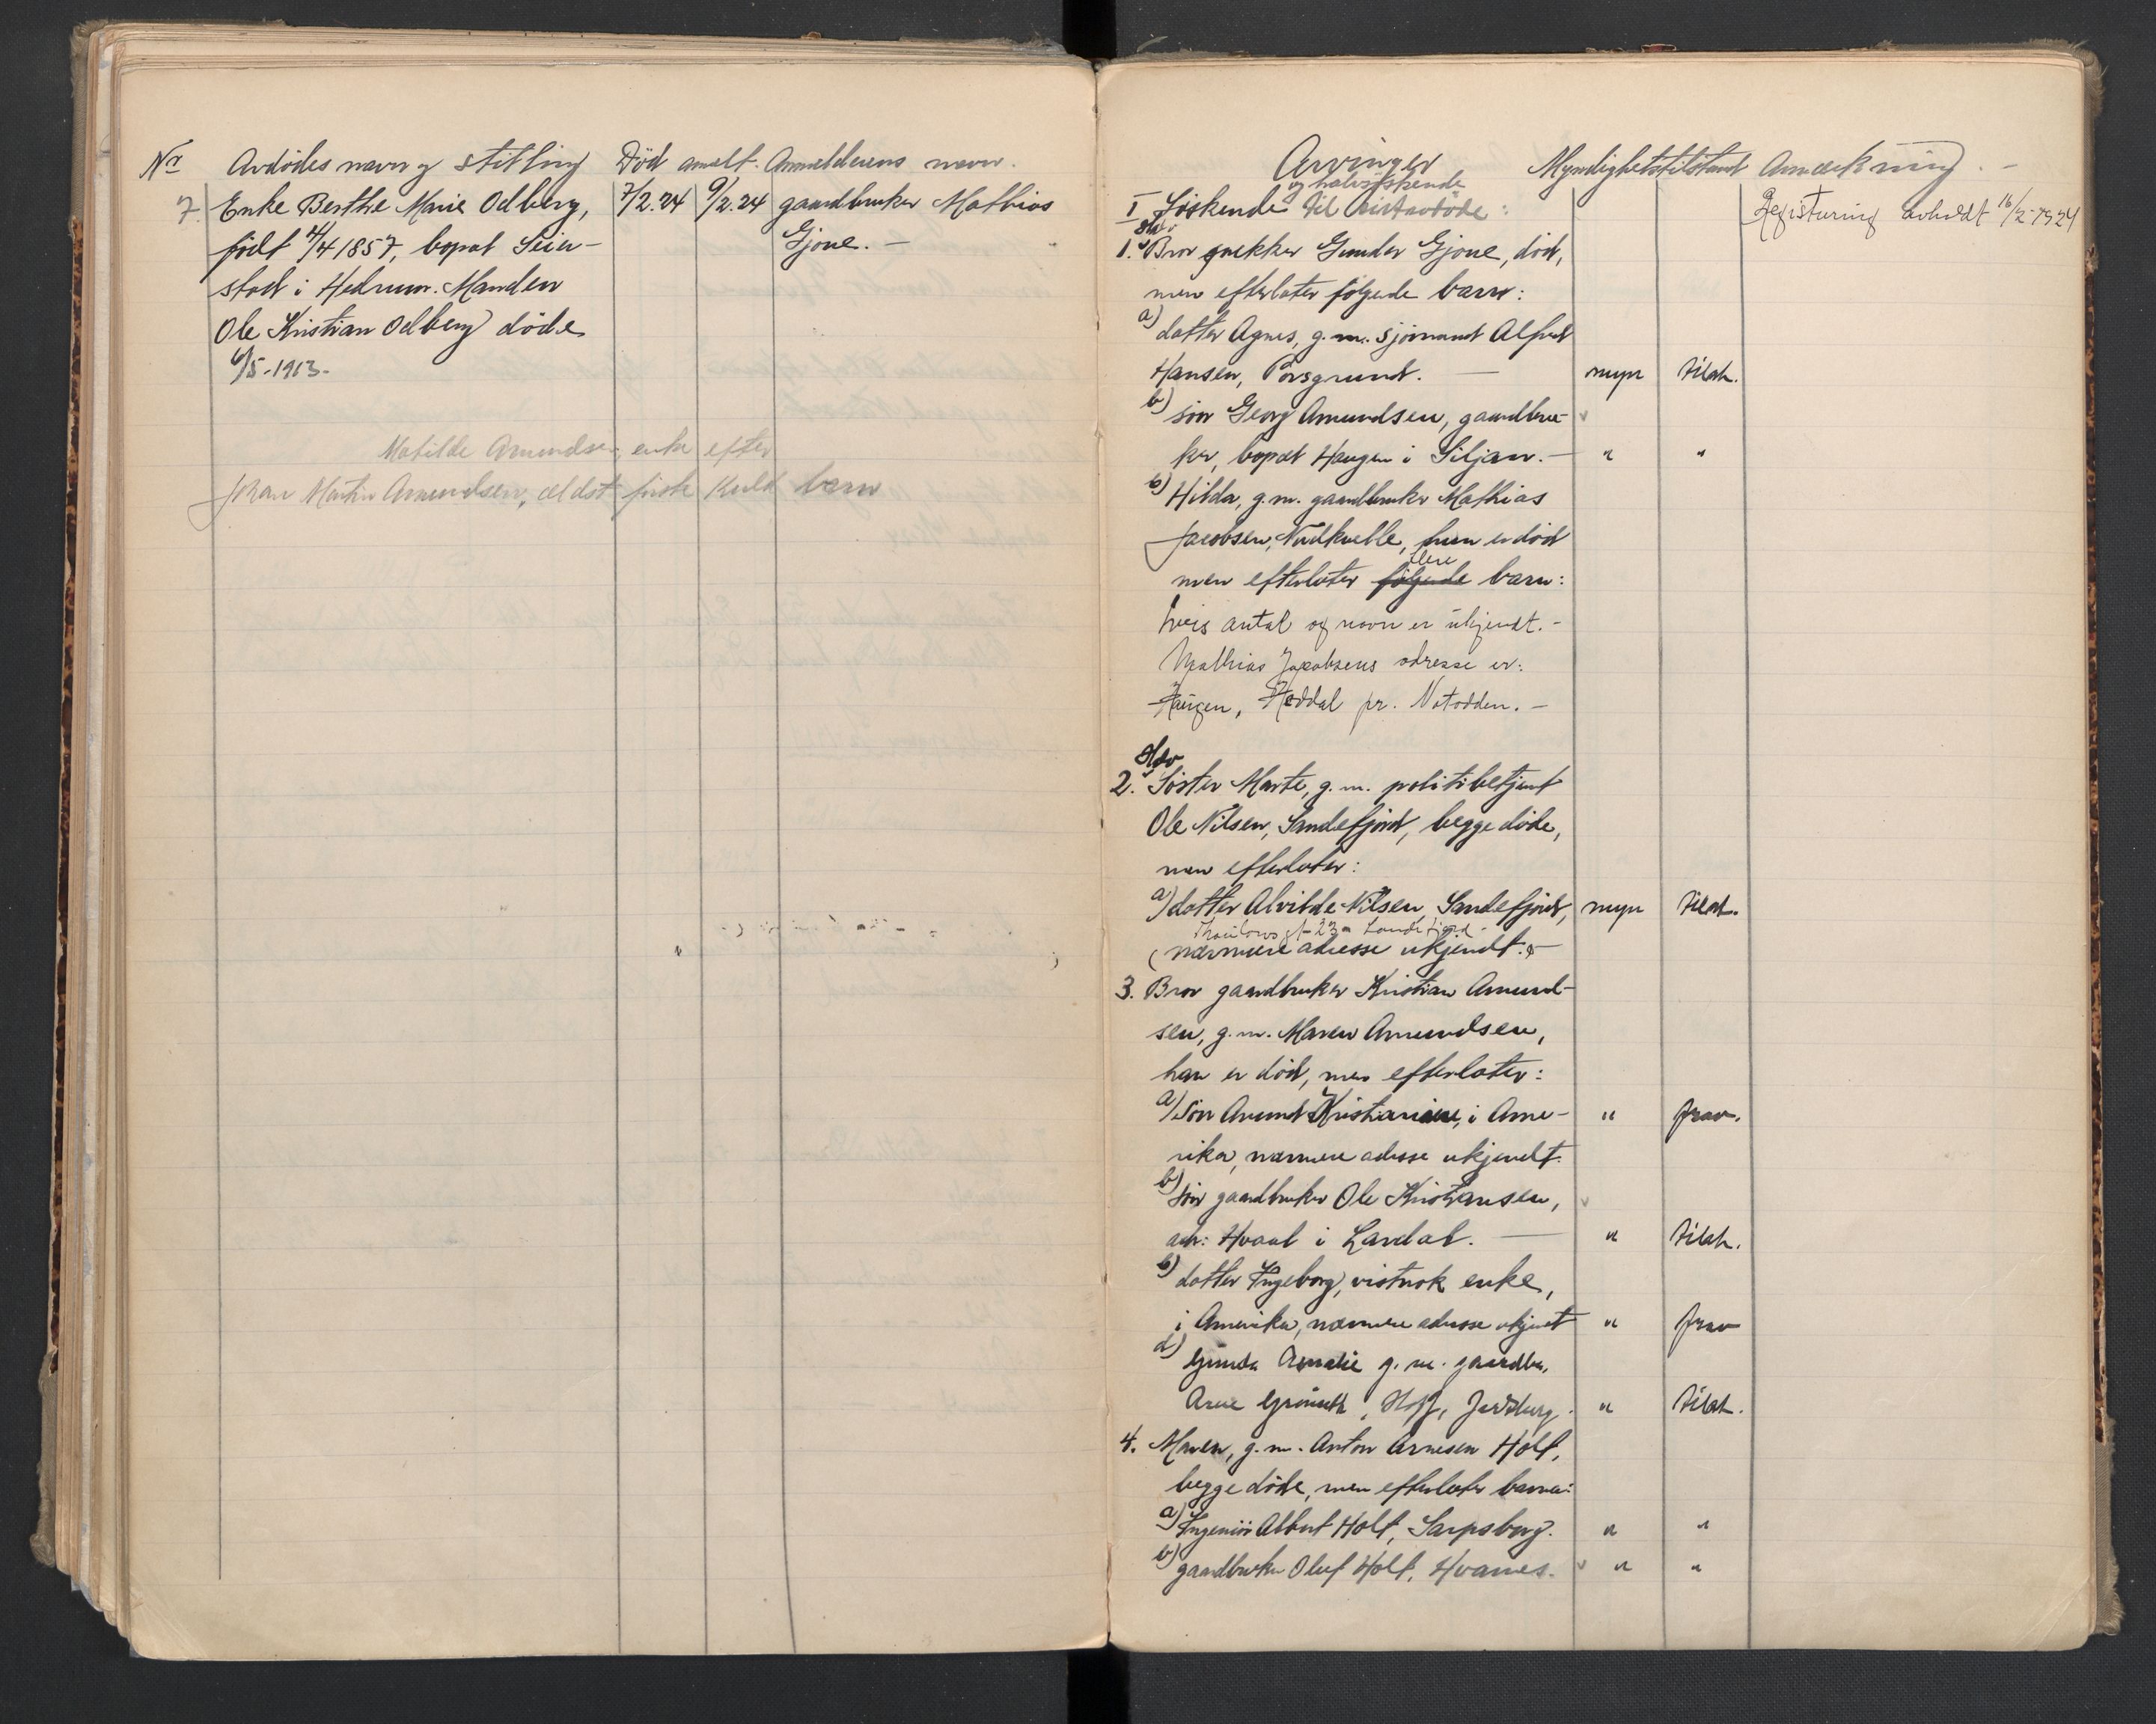 No Avdödes navn og stilling Död anmelt. Anmelderens navn.
7. Enke Berthe Marie Odberg, 7/2.24 9/2.24 gaardbruker Mathias
født 4/4 1857, bopæl Seier- Gjone. —
stad i Hedrum. Manden
Ole Kristian Odberg döde
6/5-1913-
Matilde Amundsen, enke efter
Johan Martin Amundsen, ældst kuld barn
Arvinger Myndighetstilstand Anmerkning. —
og halvsöskende
I Söskende til avdöde: Registrering avholdt 16/2-1924
Halv
1. Bror snekker Gunder Gjone, död,
men efterlater følgende barn:
a) datter Agnes, g.m. sjömand Alfred
Hansen, Porsgrund. — myn tilst.
b) sön Georg Amundsen, gaardbru-
ker, bopæl Haugen i Siljan. — " "
c) Hilda, g.m. gaardbruker Mathias
Jacobsen, Nordkvelle, hun er död
flere
men efterlater følgende barn:
hvis antal og navn er ukjendt. -
Mathias Jacobsens adresse er:
Haugen, Heddal pr. Notodden. —
Halv
2. Söster Marte, g.m. politibetjent
Ole Nilsen, Sandefjord, begge döde,
men efterlater:
a) datter Alvilde Nilsen, Sandefjord, myn tilst.
Thaulows gt 23 Sandefjord
(nærmere adresse ukjendt. —
3. Bror gaardbruker Kristian Amund-
sen, g.m. Maren Amundsen,
han er död, men efterlater:
a) Sön Amund Kristiansen, i Ame- " frav.
rika, nærmere adresse ukjendt.
b) Sön gaardbruker Ole Kristiansen,
adr: Hvaal i Lardal. — " tilst.
c) datter Ingeborg, vistnok enke,
i Amerika, nærmere adresse ukjent " frav
d) Gunda Amalie g.m. gaardbr.
Arne , Hoff, Jarlsberg. " tilst.
4. Maren, g.m. Anton Arnesen Holt,
begge döde, men efterlater barna:
a) Ingeniör Albert Holt, Sarpsborg. " "
b) gaardbruker Oluf Holt, Hvarnes. " "